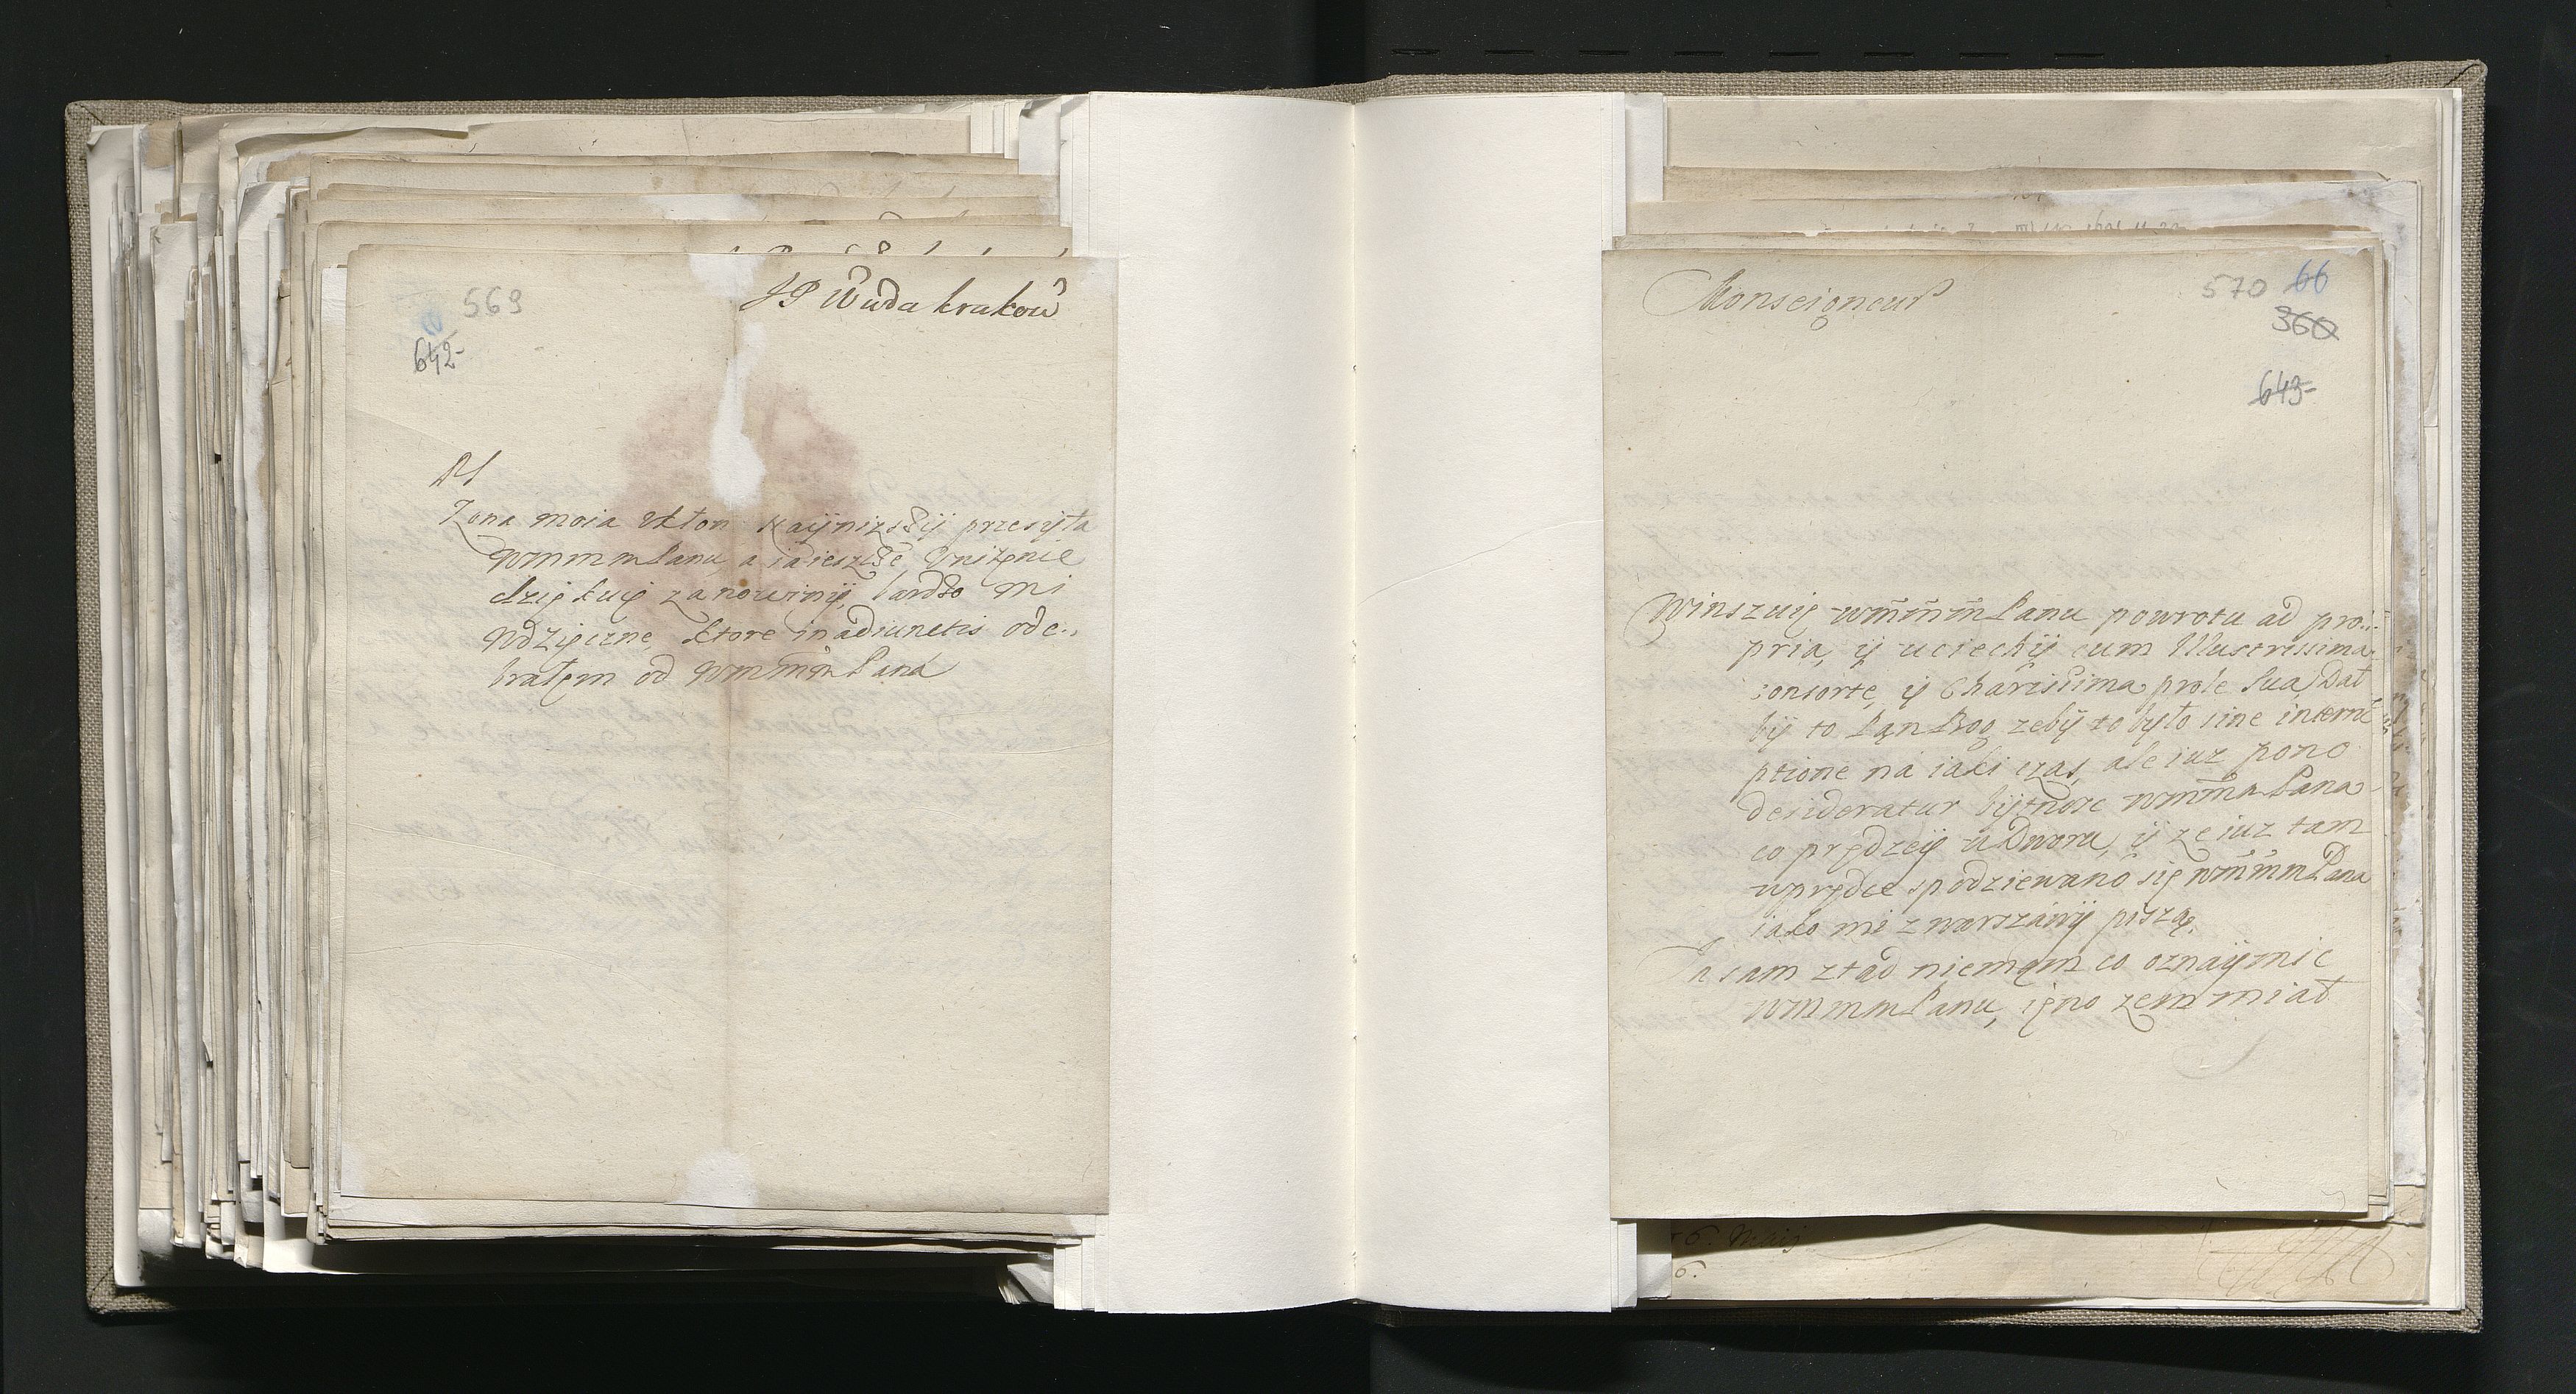 569
642
JP Wwda krakow
PS
Zona moia vkłon nayniższy przesyła
WMMMPanu, a ia ieszcze Vniżęnie
dziękuię za nowiny, bardzo mi
Wdzięczne, ktore in adiunctis ode:,
brałęm od WMMMPana
Monseigneur
570 66
360
643
Winszuię WMMMPanu powrotu ad pro:
pria, y uciechy cum Illustrissima
consorte, y Charissima prole sua, Dał
by to Pąn Bog zeby to było sine interru
ptione na iaki czas, ale iuz pono
desideratur bytnosc WMMMPana
co prędzey u Dworu, y ze iuz tam
wprędce spodziewano się WMMMPana
iako mi z warszawy piszą.
Ja sam ztąd niemąm co oznaymic
WMMMPanu, ięno zem miał
6. Maij
6.